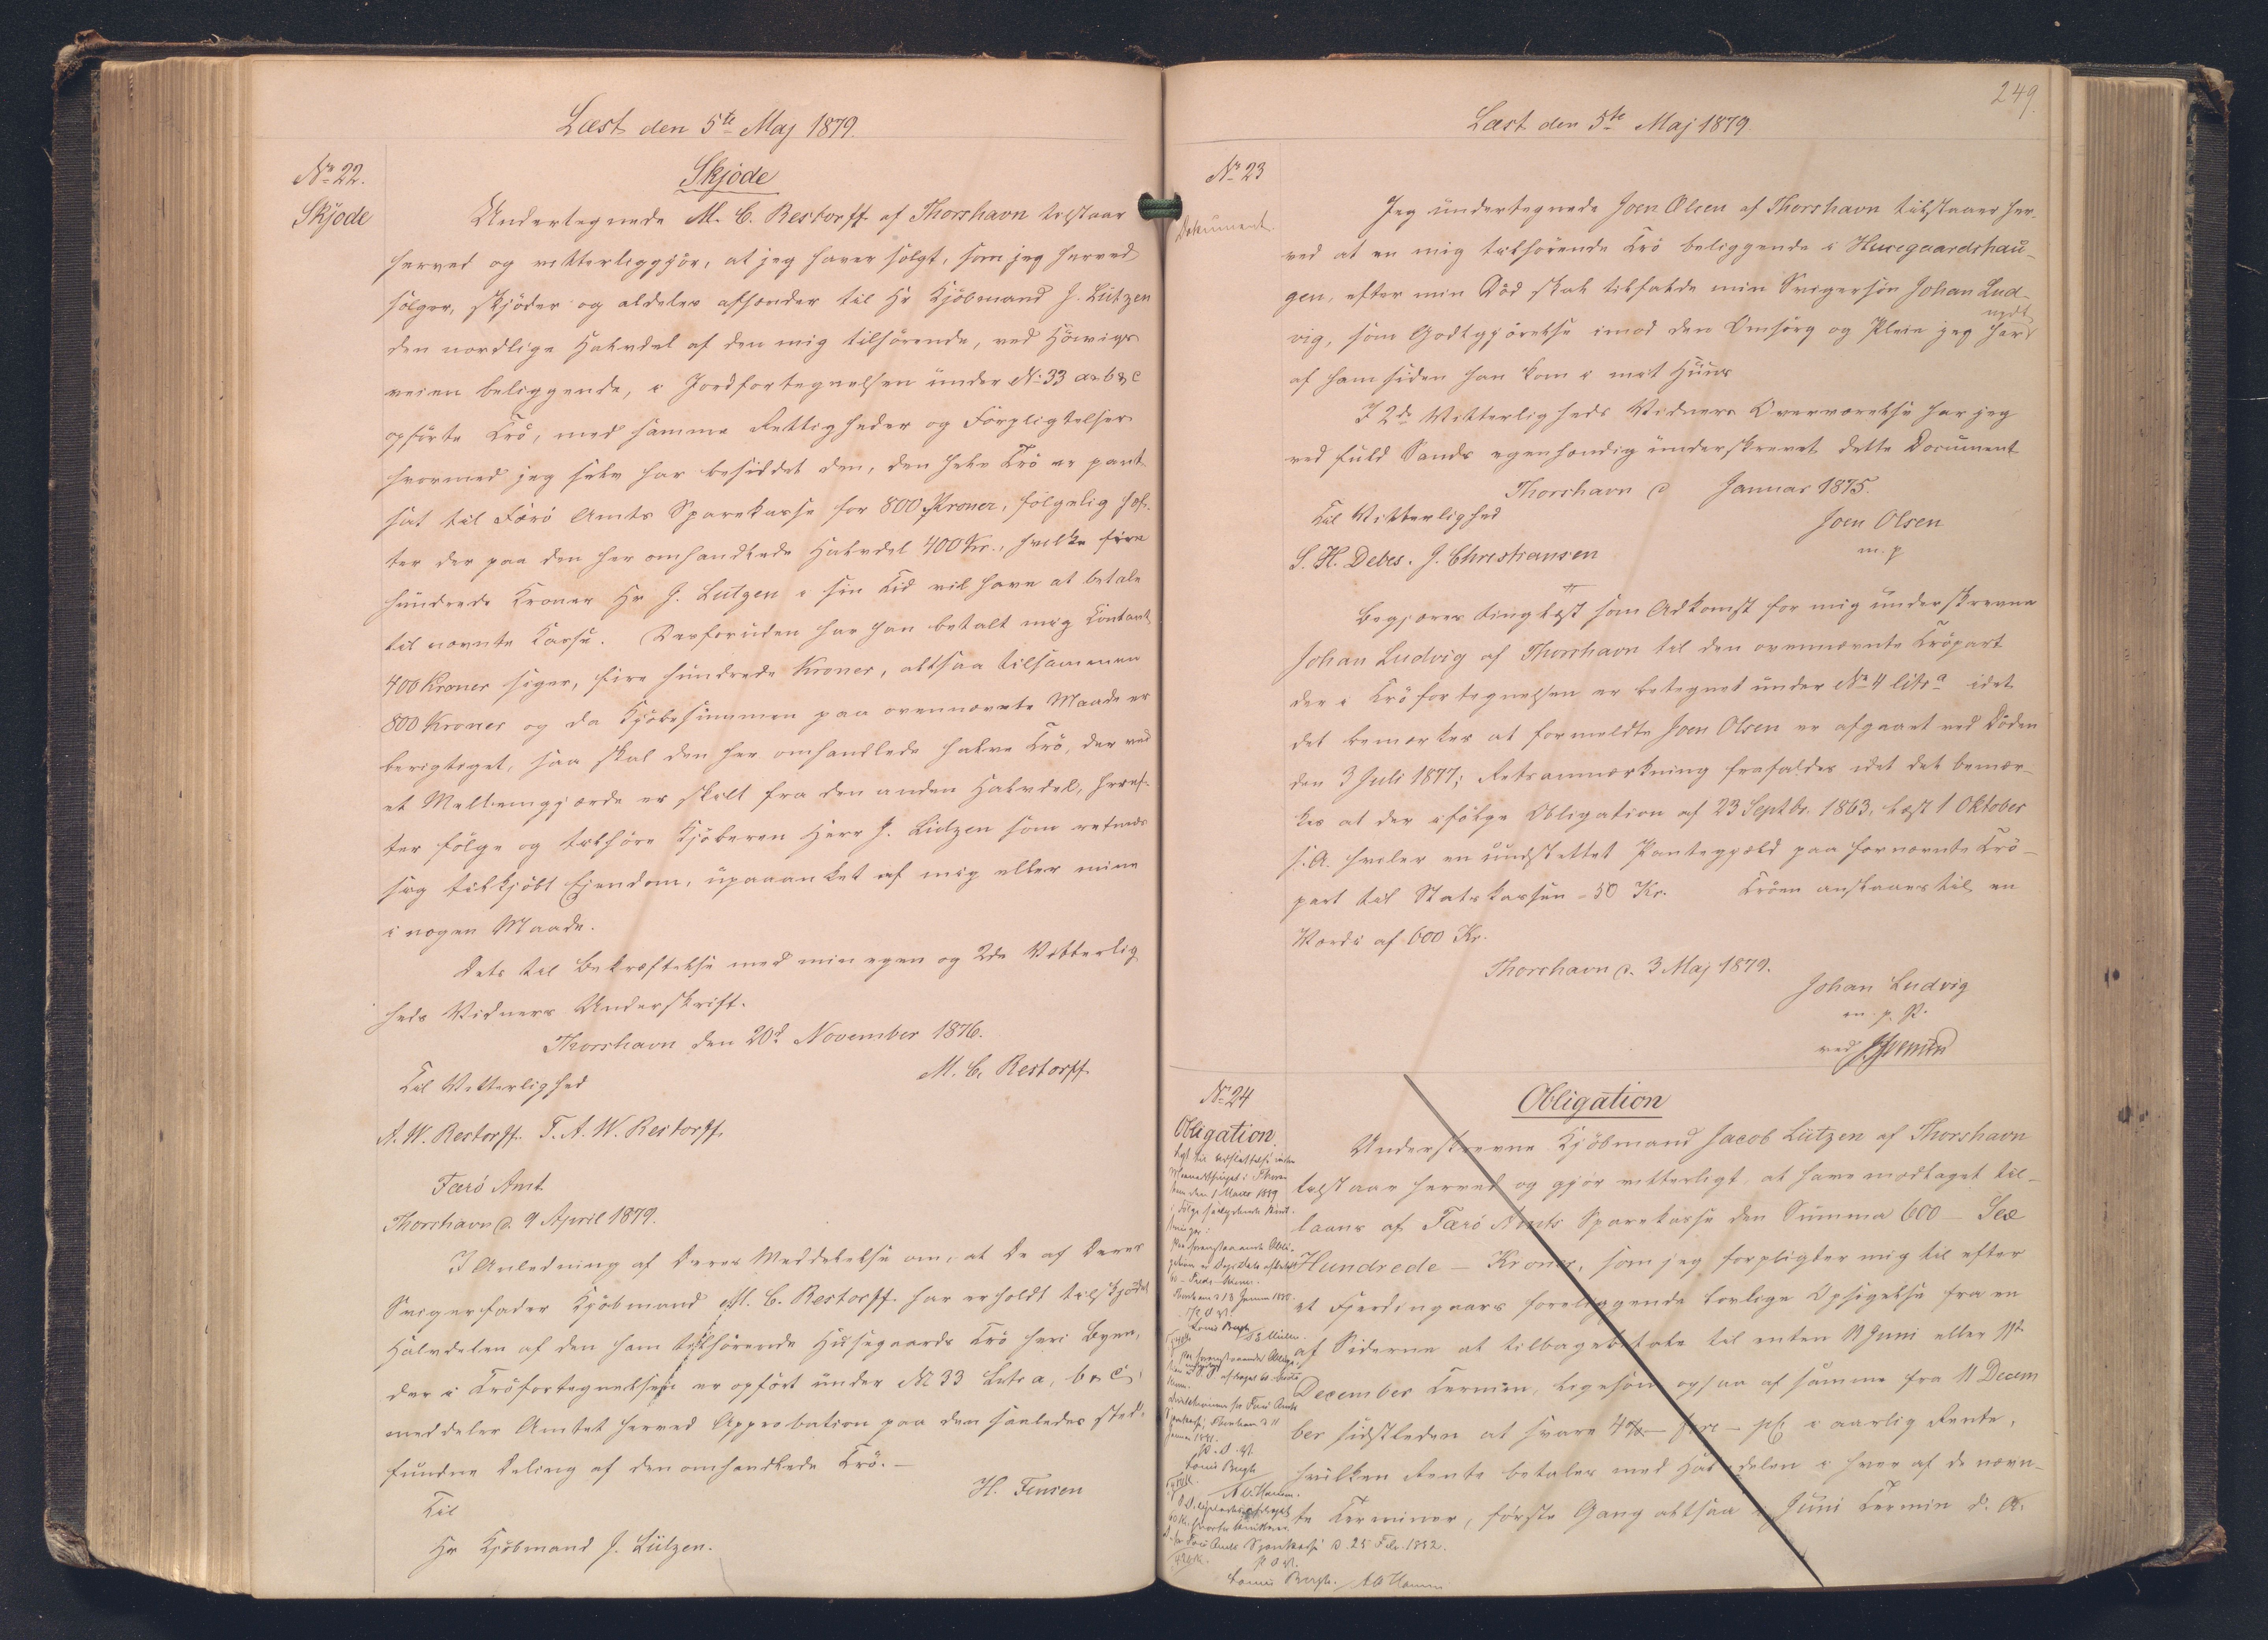 Læst den 5te Maj 1879.
No 22.
Skjøde
Skjøde
Undertegnede M. C. Restorff af Thorshavn tilstaar
herved og vitterliggjør, at jeg haver solgt, som jeg herved
sælger, skjøder og aldeles afhænder til Hr Kjøbmand J. Lützen
den nordlige Halvdel af den mig tilhørende, ved
veien beliggende, i Jordfortegnelsen under No 33 a, b & c
opførte Trø, med samme Rettigheder og Forpligtelser
hvormed jeg selv har besiddet den, den hele Trø er pant
sat til Færø Amts Sparekasse for 800 Kroner, følgelig hef-
ter der paa den her omhandlede Halvdel 400 Kr., hvilke fire
hundrede Kroner Hr J. Lützen i sin Tid vil have at betale
til nævnte Kasse. Desforuden har han betalt mig Contant
400 Kroner siger, fire hundrede Kroner, altsaa tilsammen
800 Kroner og da Kjøbesummen paa ovennævnte Maade er
berigtiget, saa skal den her omhandlede halve Trø, der ved
et Mellemgjærde er skilt fra den anden Halvdel, heref-
ter følge og tilhøre Kjøberen Herr J. Lützen som retmæs
sig tilkjøbt Ejendom, upaaanket af mig eller mine
i nogen Maade.
Dets til Bekræftelse med min egen og 2de Vitterlig
heds Vidners Underskrift.
Thorshavn den 20d November 1876.
Til Vitterlighed
M. C. Restorff
A. W. Restorff. T. A. W. Restorff.
Færø Amt
Thorshavn d. 9 April 1879.
I Anledning af Deres Meddelelse om, at De af Deres
Svigerfader Kjøbmand M. C. Restorff har erholdt tilskjødet
Halvdelen af den ham tilhørende Husegaards Trø her i Byen,
der i Trøfortegnelsen er opført under No 33 Litr a, b & c,
meddeler Amtet herved Approbation paa den saaledes sted-
fundne Deling af den omhandlede Trø. —
H. Finsen
Til
Hr Kjøbmand J. Lützen.
249.
Læst den 5te Maj 1879.
No 23
Dokument.
Jeg undertegnede Joen Olsen af Thorshavn tilstaaer her-
ved at en mig tilhørende Trø beliggende i Husegaardshau-
gen, efter min Død skal tilfalde min Svigersøn Johan Lud-
vig, som Godtgjørelse imod den Omsorg og Pleie jeg har nydt
af ham siden han kom i mit Huus
I 2de Vitterligheds Vidners Overværelse har jeg
ved fuld Sands egenhændig underskrevet dette Document
Thorshavn d Januar 1875.
Til Vitterlighed
Joen Olsen
S. H. Debes. J. Christiansen
m. p
Begjæres tinglæst som Adkomst for mig underskrevne
Johan Ludvig af Thorshavn til den ovennævnte Trøpart
der i Trøfortegnelsen er betegnet under No 4 litr a idet
det bemærkes at formeldte Joen Olsen er afgaaet ved Døden
den 3 Juli 1877; Retsanmærkning frafaldes idet det bemær-
kes at der ifølge Obligation af 23 Septbr. 1863, læst 1 Oktober
s. A. hviler en uudslettet Pantegjæld paa fornævnte Trø-
part til Statskassen - 50 Kr. Trøen anslaaes til en
Værdi af 600 Kr.
Thorshavn d. 3 Maj 1879.
Johan Ludvig
m. p. P.
ved
No 24
Obligation
Obligation
Underskrevne Kjøbmand Jacob Lützen af Thorshavn
tilstaar herved og gjør vitterligt at have modtaget til-
laans af Færø Amts Sparekasse den Summa 600 — Sex
Hundrede — Kroner, som jeg forpligter mig til efter
et Fjerdingaars foreliggende lovlige Opsigelse fra en
af Siderne at tilbagebetale til enten 11 Juni eller 11te
December Termin, ligesom ogsaa af samme fra 11 Decem
ber sidstleden at svare 4% — fire — pCt i aarlig Rente,
hvilken Rente betales med Halvdelen i hver af de nævn-
te Terminer, første Gang altsaa i Juni Termin d. A.
den 1 Marts 1889
Louis Bergh
Louis Bergh
Færø Amts Sparekasse d. 25 Febr. 1882.
Louis Bergh.